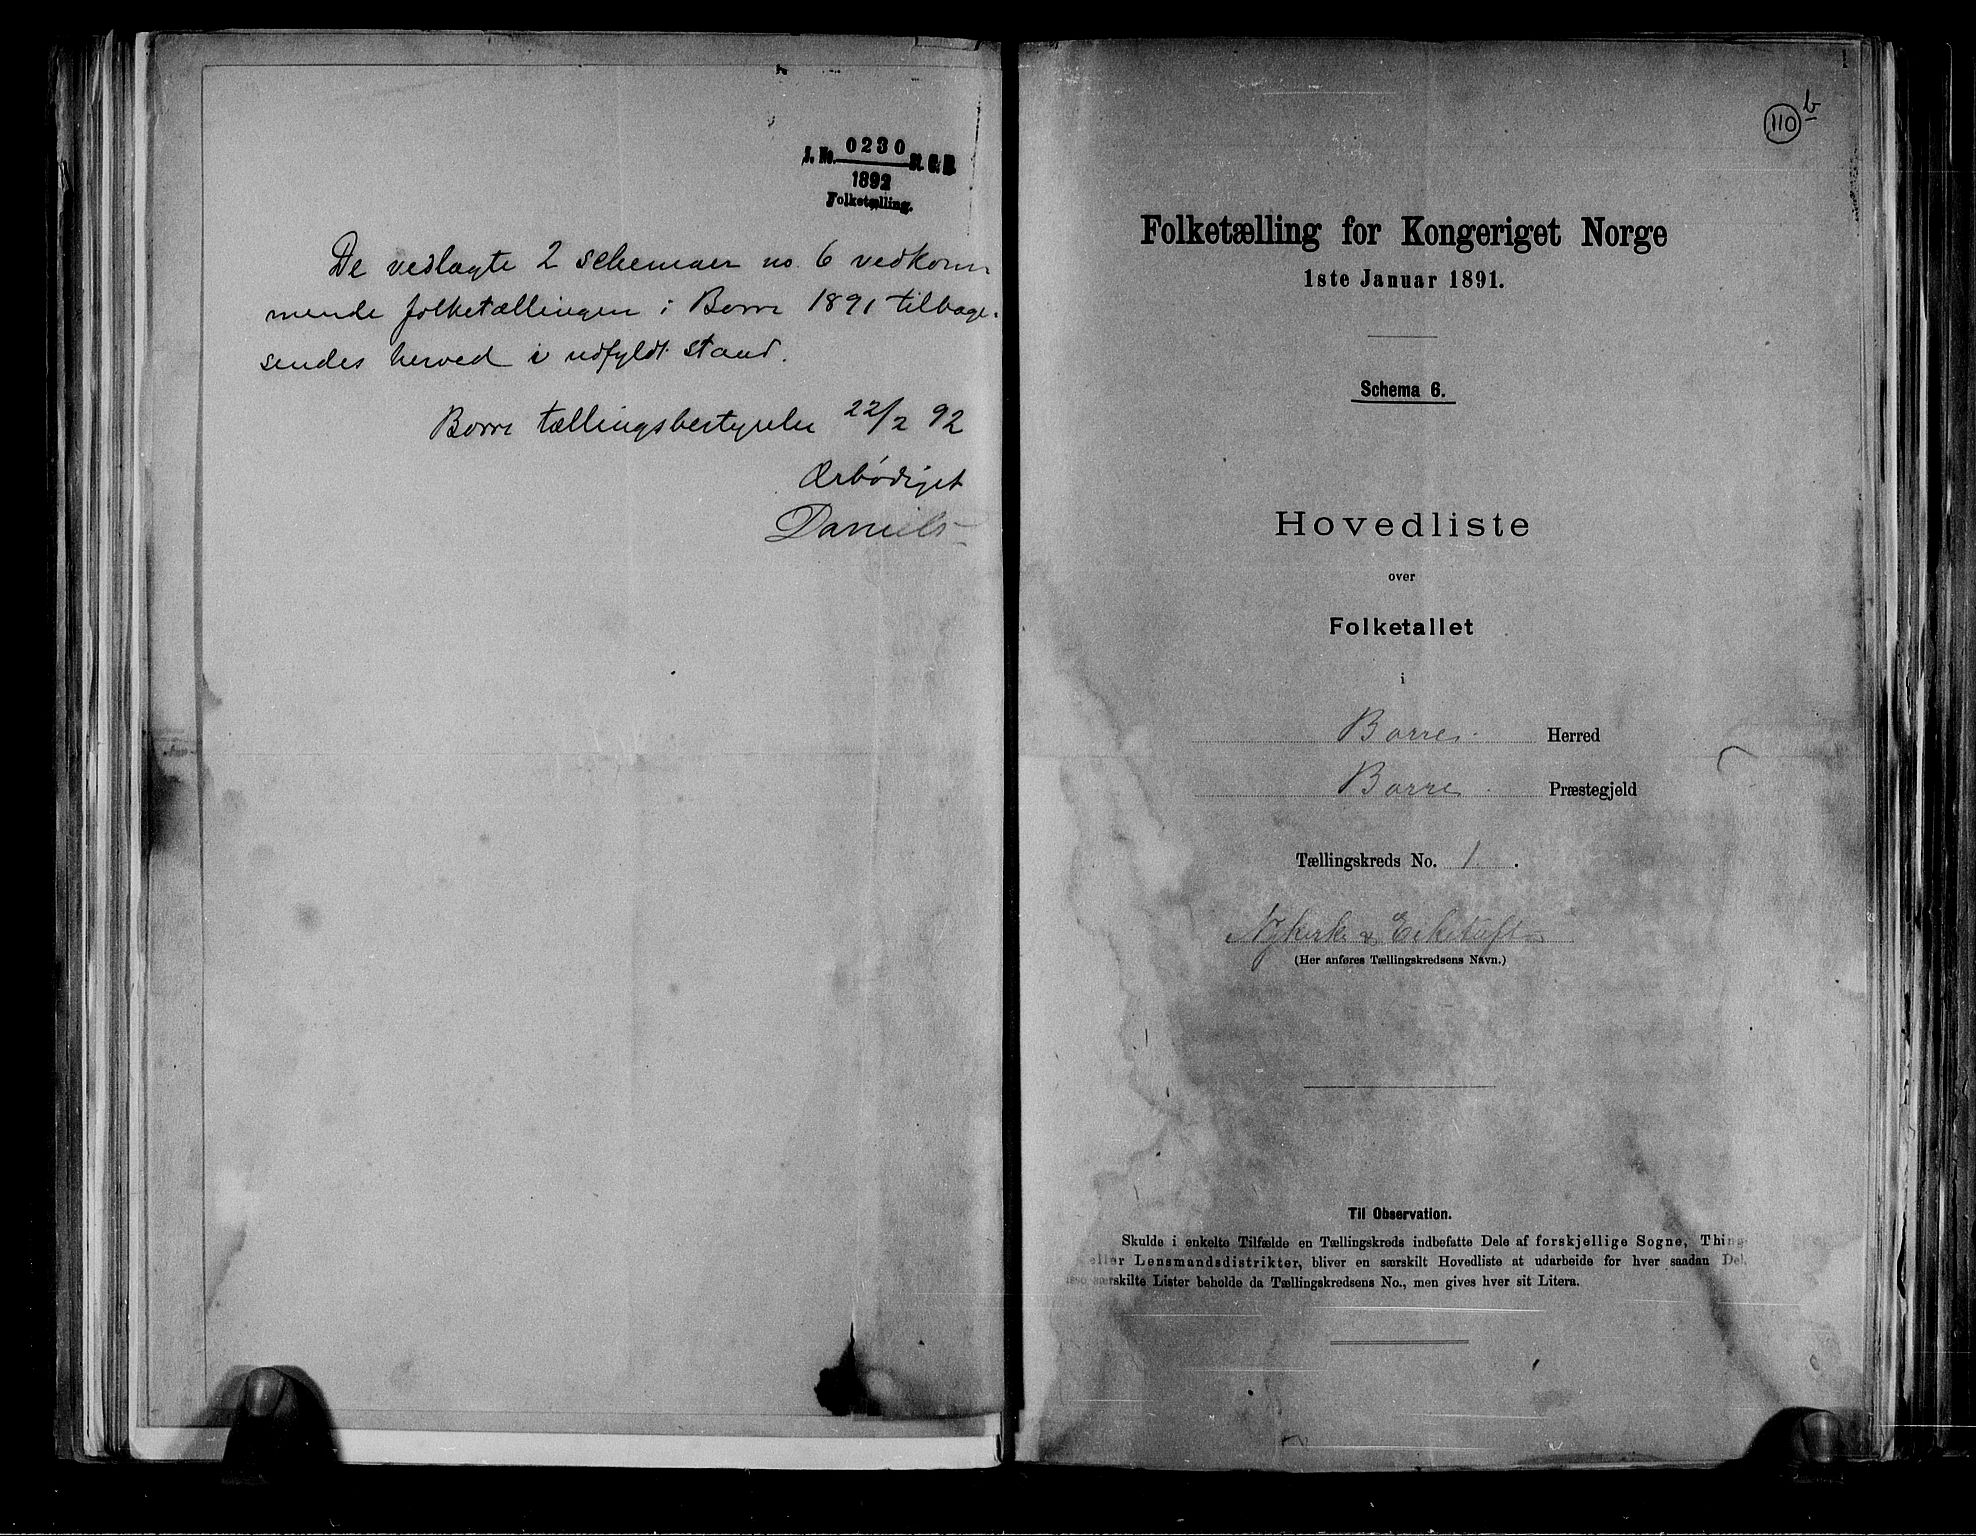 J. No. 0230 St. C. B.
1892
Folketælling.
De vedlagte 2 schemaer no. 6 vedkom-
mende folketællingen i Borre 1891 tilbage-
sendes herved i udfyldt stand.
Borre tællingsbestyrelse 22/2 92
Ærbødigst
Daniels
110 b
Folketælling for Kongeriget Norge
1ste Januar 1891.
Schema 6.
Hovedliste
over
Folketallet
i
Borre Herred
Borre Præstegjeld
Tællingskreds No. 1.
Nykirke &
(Her anføres Tællingskredsens Navn.)
Til Observation.
Skulde i enkelte Tilfælde en Tællingskreds indbefatte Dele af forskjellige Sogne, Thing-
eller Lensmandsdistrikter, bliver en særskilt Hovedliste at udarbeide for hver saadan Del.
særskilte Lister beholde da Tællingskredsens No., men gives hver sit Litera.